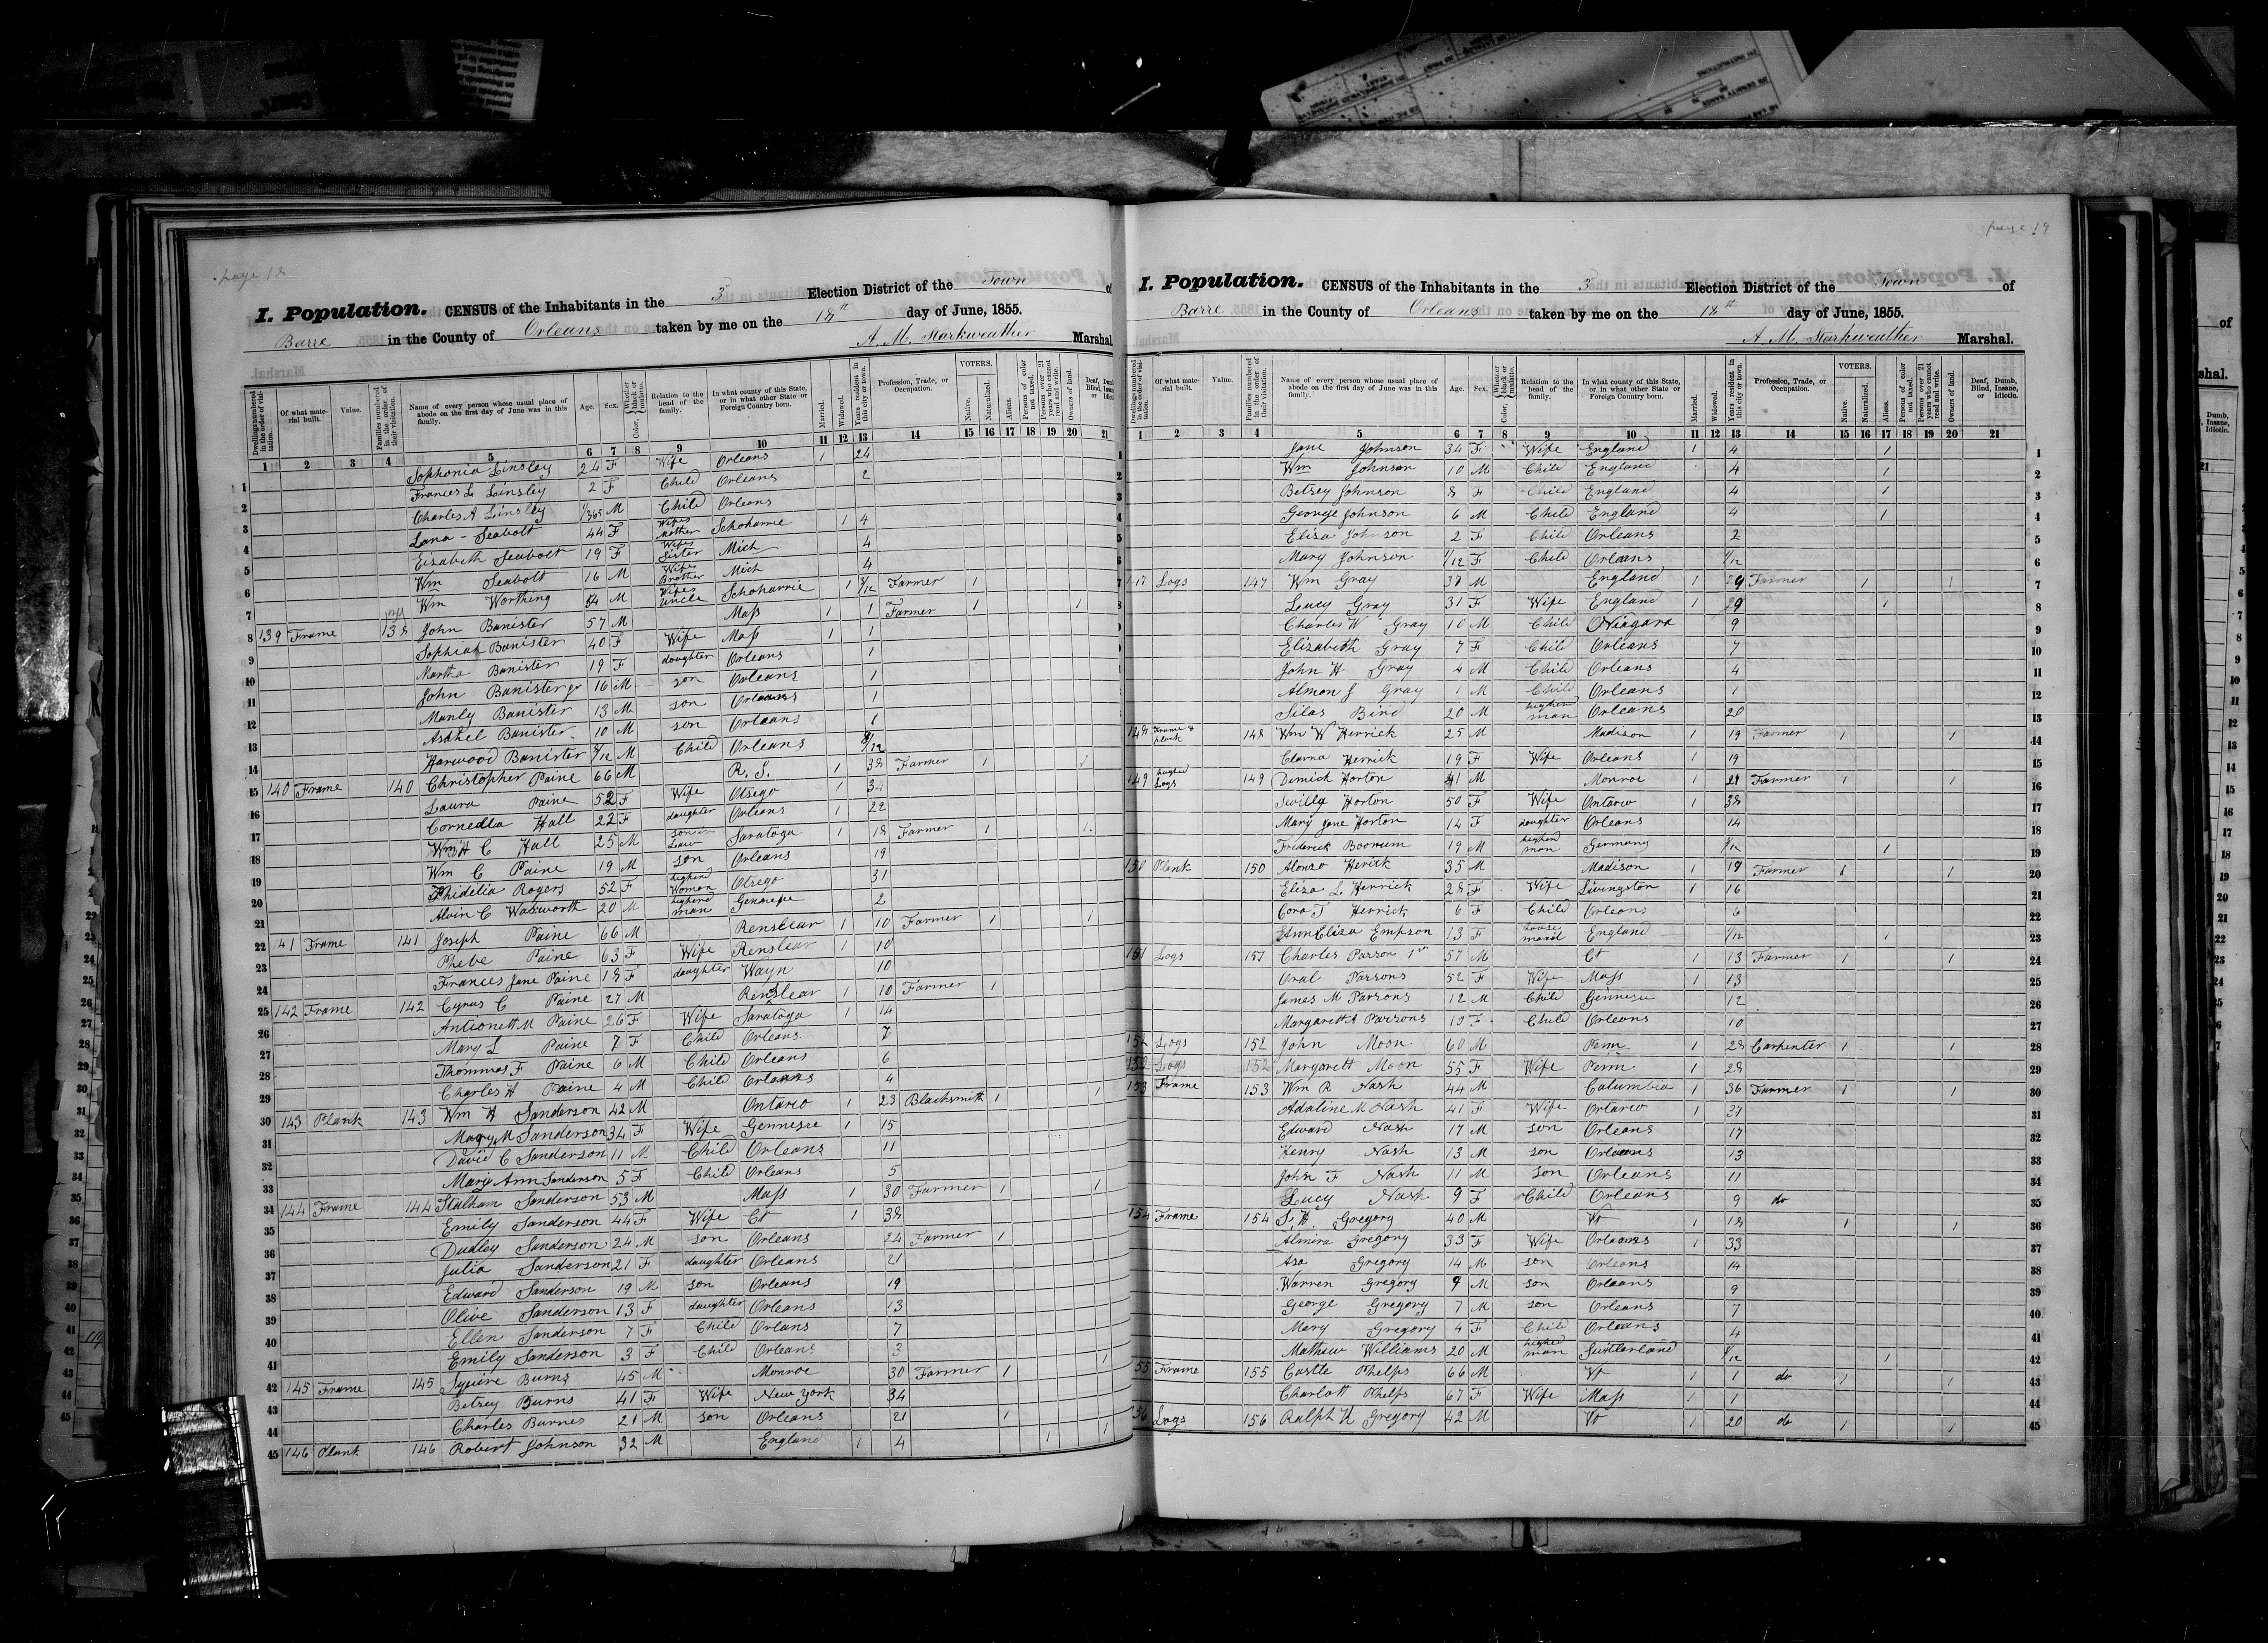 page 18
I. Population. CENSUS of the Inhabitants in the 3 Election District of the Town of
Barre in the County of Orleans taken by me on the 18th day of June, 1855.
A. M. Starkweather Marshal.
Dwellings numbered in the order of visitation. Of what material built. Value. Families numbered in the order of their visitation. Name of every person whose usual place of abode on the first day of June was in this family. Age. Sex. Color, Whether black or mulatto. Relation to the head of the family. In what county of this State, or in what other State or Foreign Country born. Married. Widowed. Years resident in this city or town. Profession, Trade, or Occupation. VOTERS. Native. Naturalized. Aliens. Persons of color not taxed. Persons over 21 years who cannot read and write. Owners of land. Deaf, Blind, or Dumb, Insane, Idiotic.
1 2 3 4 5 6 7 8 9 10 11 12 13 14 15 16 17 18 19 20 21
Sophonia Linsley 24 F Wife Orleans 1 24
Frances L Linsley 2 F Child Orleans 2
Charles A Linsley 1/365 M Child Orleans
Lana - Seabolt 44 F Wifes Mother Schoharrie 1 4
Eizabeth Seabolt 19 F Wifes Sister Mich 4
Wm Seabolt 16 M Wifes Brother Mich 4
Wm Worthing 54 M Wifes Uncle Schoharrie 1 8/12 Farmer 1
139 Frame 138 John Banister 57 M Mass 1 1 Farmer 1 1
Sophia Banister 40 F Wife Mass 1 1
Martha Banister 19 F daughter Orleans 1
John Banister jr 16 M son Orleans 1
Manly Banister 13 M son Orleans 1
Asahel Banister 10 M son Orleans 1
Harwood Banister 8/12 M Child Orleans 8/12
140 Frame 140 Christopher Paine 66 M R. I. 1 38 Farmer 1 1
Laura Paine 52 F Wife Otsego 1 34
Cornelia Hall 22 F daughter Orleans 1 22
Wm H C Hall 25 M son in Law Saratoga 1 18 Farmer 1 1
Wm C Paine 19 M son Orleans 19
Phidelia Rogers 52 F highend Woman Otsego 31
Alvin C Wadsworth 20 M highend man Genesee 2
141 Frame 141 Joseph Paine 66 M Renslear 1 10 Farmer 1 1
Phebe Paine 63 F Wife Renslear 1 10
Frances Jane Paine 18 F daughter Wayn 10
142 Frame 142 Cyrus C Paine 27 M Renslear 1 10 Farmer 1
Antionett M Paine 26 F Wife Saratoga 1 14
Mary L Paine 7 F Child Orleans 7
Thommas F Paine 6 M Child Orleans 6
Charles H Paine 4 M Child Orleans 4
143 Plank 143 Wm H Sanderson 42 M Ontario 1 23 Blacksmith 1 1
Mary M Sanderson 34 F Wife Gennesee 1 15
David C Sanderson 11 M Child Orleans 11
Mary Ann Sanderson 5 F Child Orleans 5
144 Frame 144 Stalham Sanderson 53 M Mass 1 30 Farmer 1 1
Emily Sanderson 44 F Wife Ct 1 38
Dudley Sanderson 24 M son Orleans 24 Farmer 1
Julia Sanderson 21 F daughter Orleans 21
Edward Sanderson 19 M son Orleans 19
Olive Sanderson 13 F daughter Orleans 13
Ellen Sanderson 7 F Child Orlans 7
Emily Sanderson 3 F Child Orleans 3
145 Frame 145 Squire Burns 45 M Monroe 30 Farmer 1 1
Betsey Burns 41 F Wife New York 34
Charles Burnes 21 M son Orleans 21 1
146 Plank 146 Robert Johnson 32 M England 1 4 1 1
page 19
I. Population. CENSUS of the Inhabitants in the 3 Election District of the Town of
Barre in the County of Orleans taken by me on the 18th day of June, 1855.
A M Starkweather Marshal.
Dwellings numbered in the order of visitation. Of what material built. Value. Families numbered in the order of their visitation. Name of every person whose usual place of abode on the first day of June was in this family. Age. Sex. Color, Whether black or mulatto. Relation to the head of the family. In what county of this State, or in what other State or Foreign Country born. Married. Widowed. Years resident in this city or town. Profession, Trade, or Occupation. VOTERS. Native. Naturalized. Aliens. Persons of color not taxed. Persons over 21 years who cannot read and write. Owners of land. Deaf, Blind, or Dumb, Insane, Idiotic.
1 2 3 4 5 6 7 8 9 10 11 12 13 14 15 16 17 18 19 20 21
1 Jane Johnson 34 F Wife England 1 4 1
2 Wm Johnson 10 M Child England 4 1
3 Betsey Johnson 8 F Child England 4 1
4 George Johnson 6 M Child England 4 1
5 Eliza Johnson 2 F Child Orleans 2
6 Mary Johnson 1/12 F Child Orleans 1/12
7 147 Logs 147 Wm Gray 38 M England 1 29 Farmer 1 1
8 Lucy Gray 31 F Wife England 1 29 1
9 Charles W Gray 10 M Child Niagara 9
10 Elizabeth Gray 7 F Child Orleans 7
11 John H Gray 4 M Child Orleans 4
12 Almon J Gray 1 M Child Orleans 1
13 Silas Bird 20 M highend man Orleans 20
14 148 Frame & plank 148 Wm W Herrick 25 M Madison 1 19 Farmer 1 1
15 Clarna Herrick 19 F Wife Orleans 1 19
16 149 hughed Logs 149 Dimick Horton 41 M Monroe 1 21 Farmer 1 1
17 Horton 50 F Wife Ontario 1 38
18 Mary Jane Horton 14 F daughter Orleans 14
19 Frederick Boorum 19 M highend man Germany 1
20 150 Plank 150 Alonzo Herick 35 M Madison 1 19 Farmer 1 1
21 Eliza L Herrick 28 F Wife Livingston 1 16
22 Cora T Herrick 6 F Child Orleans 6
23 Ann Eliza Empson 13 F house maid England 1/12 1
24 151 Logs 151 Charles Parson 1st 57 M Ct 1 13 Farmer 1 1
25 Oral Parsons 52 F Wife Mass 1 13
26 James M Parsons 12 M Child Gennesee 12
27 Margarett A Parsons 10 F Child Orleans 10
28 152 Logs 152 John Moon 60 M Penn 1 28 Carpenter 1 1
29 152 Logs 152 Margarett Moon 55 F Wife Penn 1 28
30 153 Frame 153 Wm R Nash 44 M Columbia 1 36 Farmer 1 1
31 Adaline M Nash 41 F Wife Ortario 1 37
32 Edward Nash 17 M son Orleans 17
33 Henry Nash 13 M son Orleans 13
34 John F Nash 11 M son Orleans 11
35 Lucy Nash 9 F Child Orleans 9 do
36 154 Frame 154 S. H. Gregory 40 M Vt 1 18 1 1
37 Almira Gregory 33 F Wife Orleans 1 33
38 Asa Gregory 14 M son Orleans 14
39 Warren Gregory 9 M son Orleans 9
40 George Gregory 7 M son Orleans 7
41 Mary Gregory 4 F Child Orleans 4
42 Mathew Williams 20 M highed man Switlerland 1
43 155 Frame 155 Castle Phelps 66 M Vt 1 1 do 1 1
44 Charlott Phelps 67 F Wife Mass 1 1
45 156 Logs 156 Ralph H Gregory 42 M Vt 1 20 do 1 1